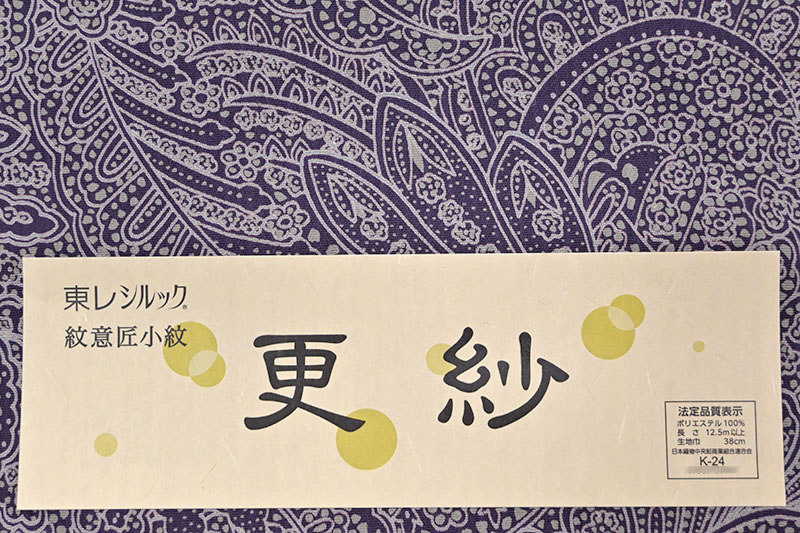 東レシルック®
紋意匠小紋
更紗
法定品質表示
ポリエステル 100%
長さ 12.5m以上
生地巾 38cm
日本織物中央卸商業組合連合会
K-24